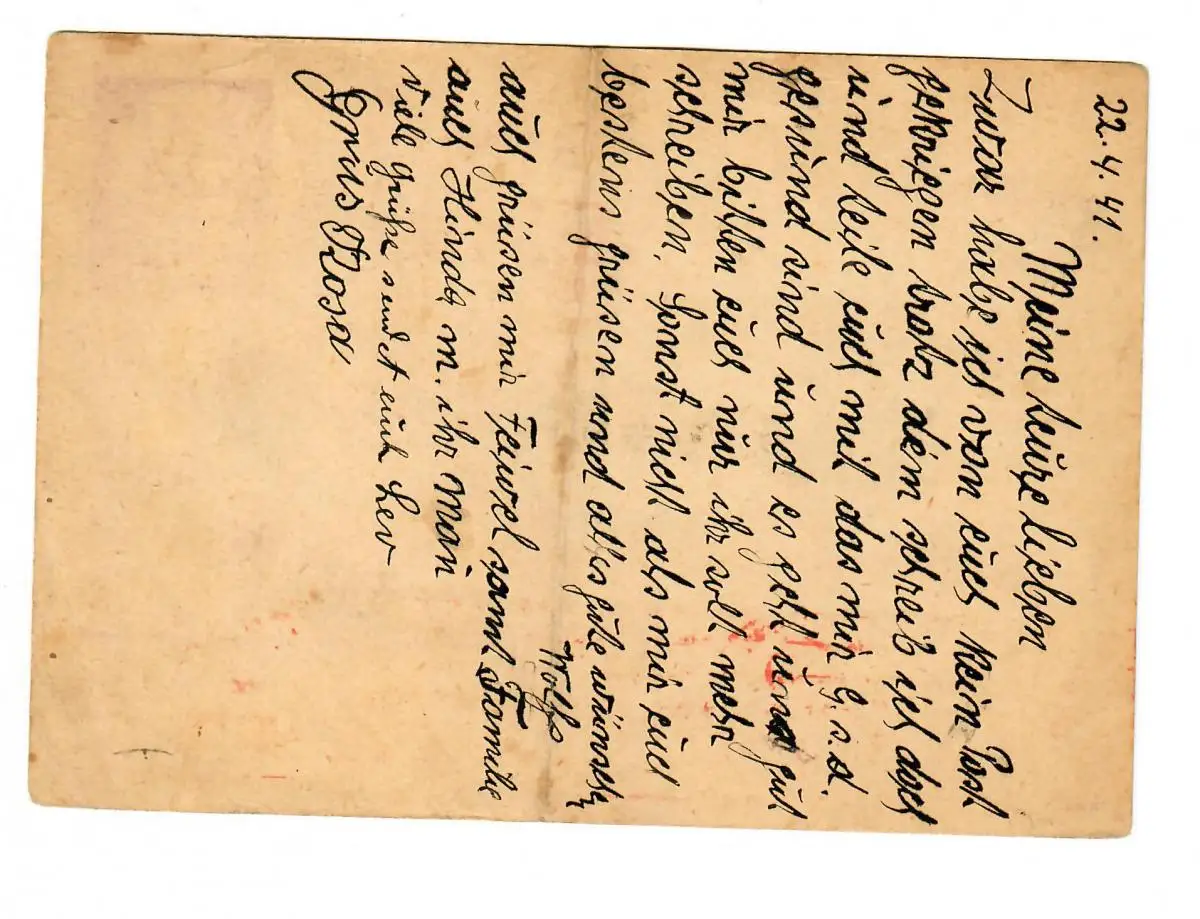 22.4.41.
Meine teure lieben
Zwar habe ich von euch kein Post
gekriegen trotz dem schreib ich doch
und teile euch mit das mir G.s.d.
gesund sind und es geht uns gut
mir bitten euch nur ihr solt mehr
schreiben. Sonst nicht als mir euch
bestens grüsen und alles gute wünscht
Wolfs
auch grüsen mir Feiwel samt Familie
auch Hinda m. ihr man
viele grüße sendet euch Lev
Grus Rosa